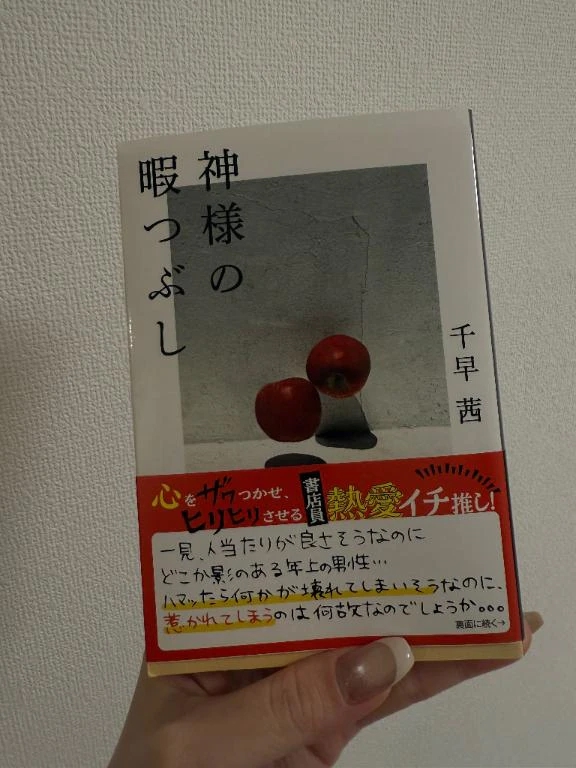 神様の
暇つぶし
千早 茜
心をザワつかせ、
ヒリヒリさせる
書店員
熱愛イチ推し!
一見、人当たりが良さそうなのに
どこか影のある年上の男性…
ハマッたら何かが壊れてしまいそうなのに、
惹かれてしまうのは何故なのでしょうか。。。
裏面に続く→